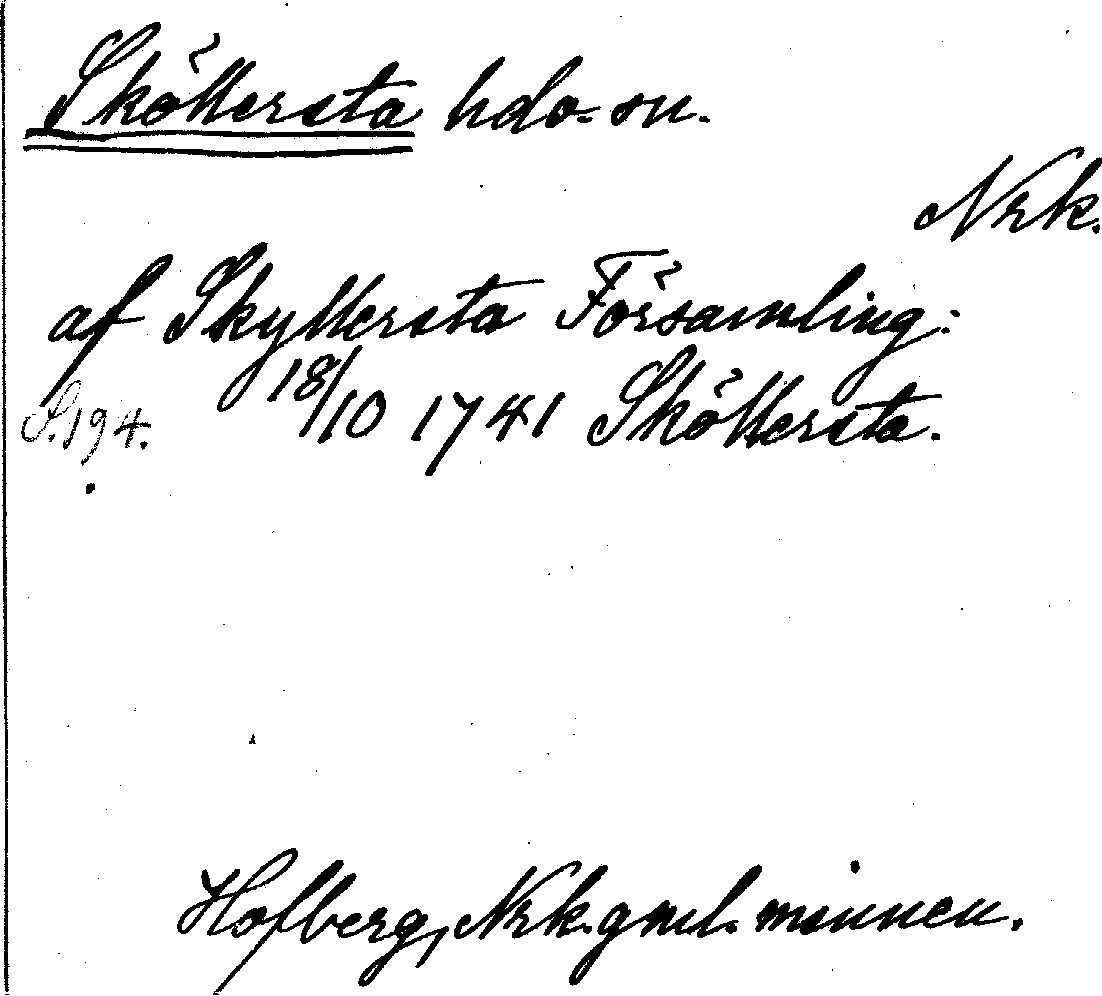 Sköllersta hdo. sn.
Nrk.
af Skyllersta Församling:
S. 194. 18/10 1741 Sköllersta.
Hofberg, Nrk. gml. minnen.